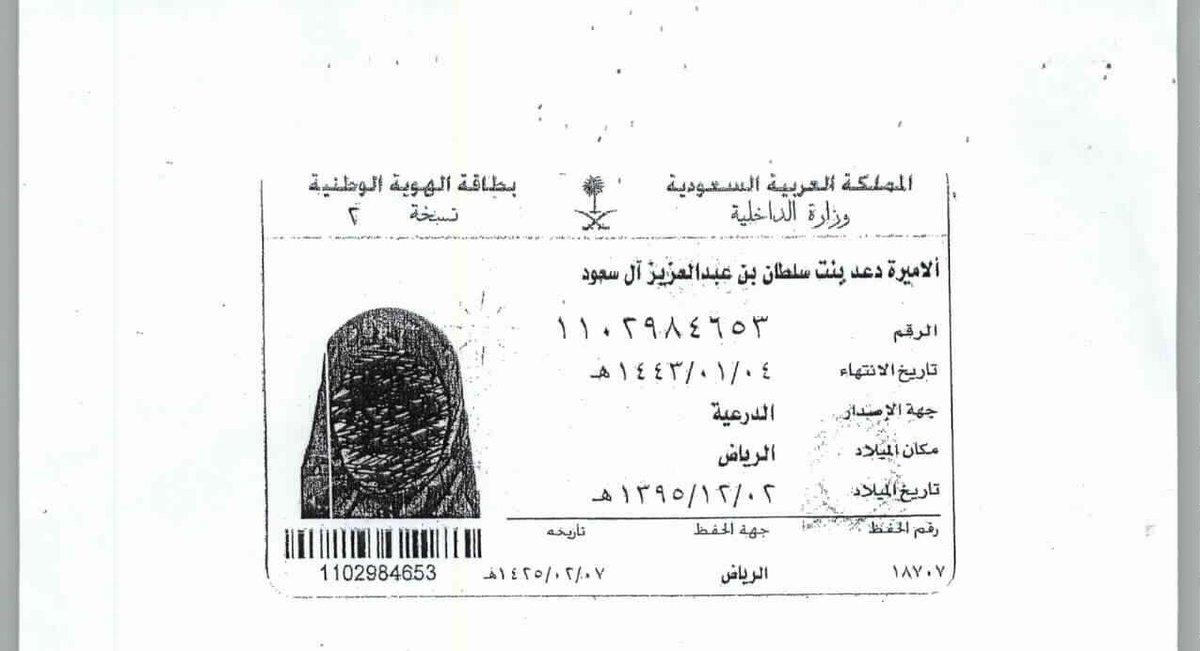 المملكة العربية السعودية
وزارة الداخلية
بطاقة الهوية الوطنية
نسخة ٢
الاميرة دعد بنت سلطان بن عبدالعزيز آل سعود
الرقم ١١٠٢٩٨٤٦٥٣
تاريخ الانتهاء ١٤٤٣/٠١/٠٤ هـ
جهة الإصدار الدرعية
مكان الميلاد الرياض
تاريخ الميلاد ١٣٩٥/١٢/٠٢ هـ
رقم الحفظ جهة الحفظ تاريخه
١٨٧٠٧ الرياض ١٤٢٥/٠٢/٠٧هـ
1102984653